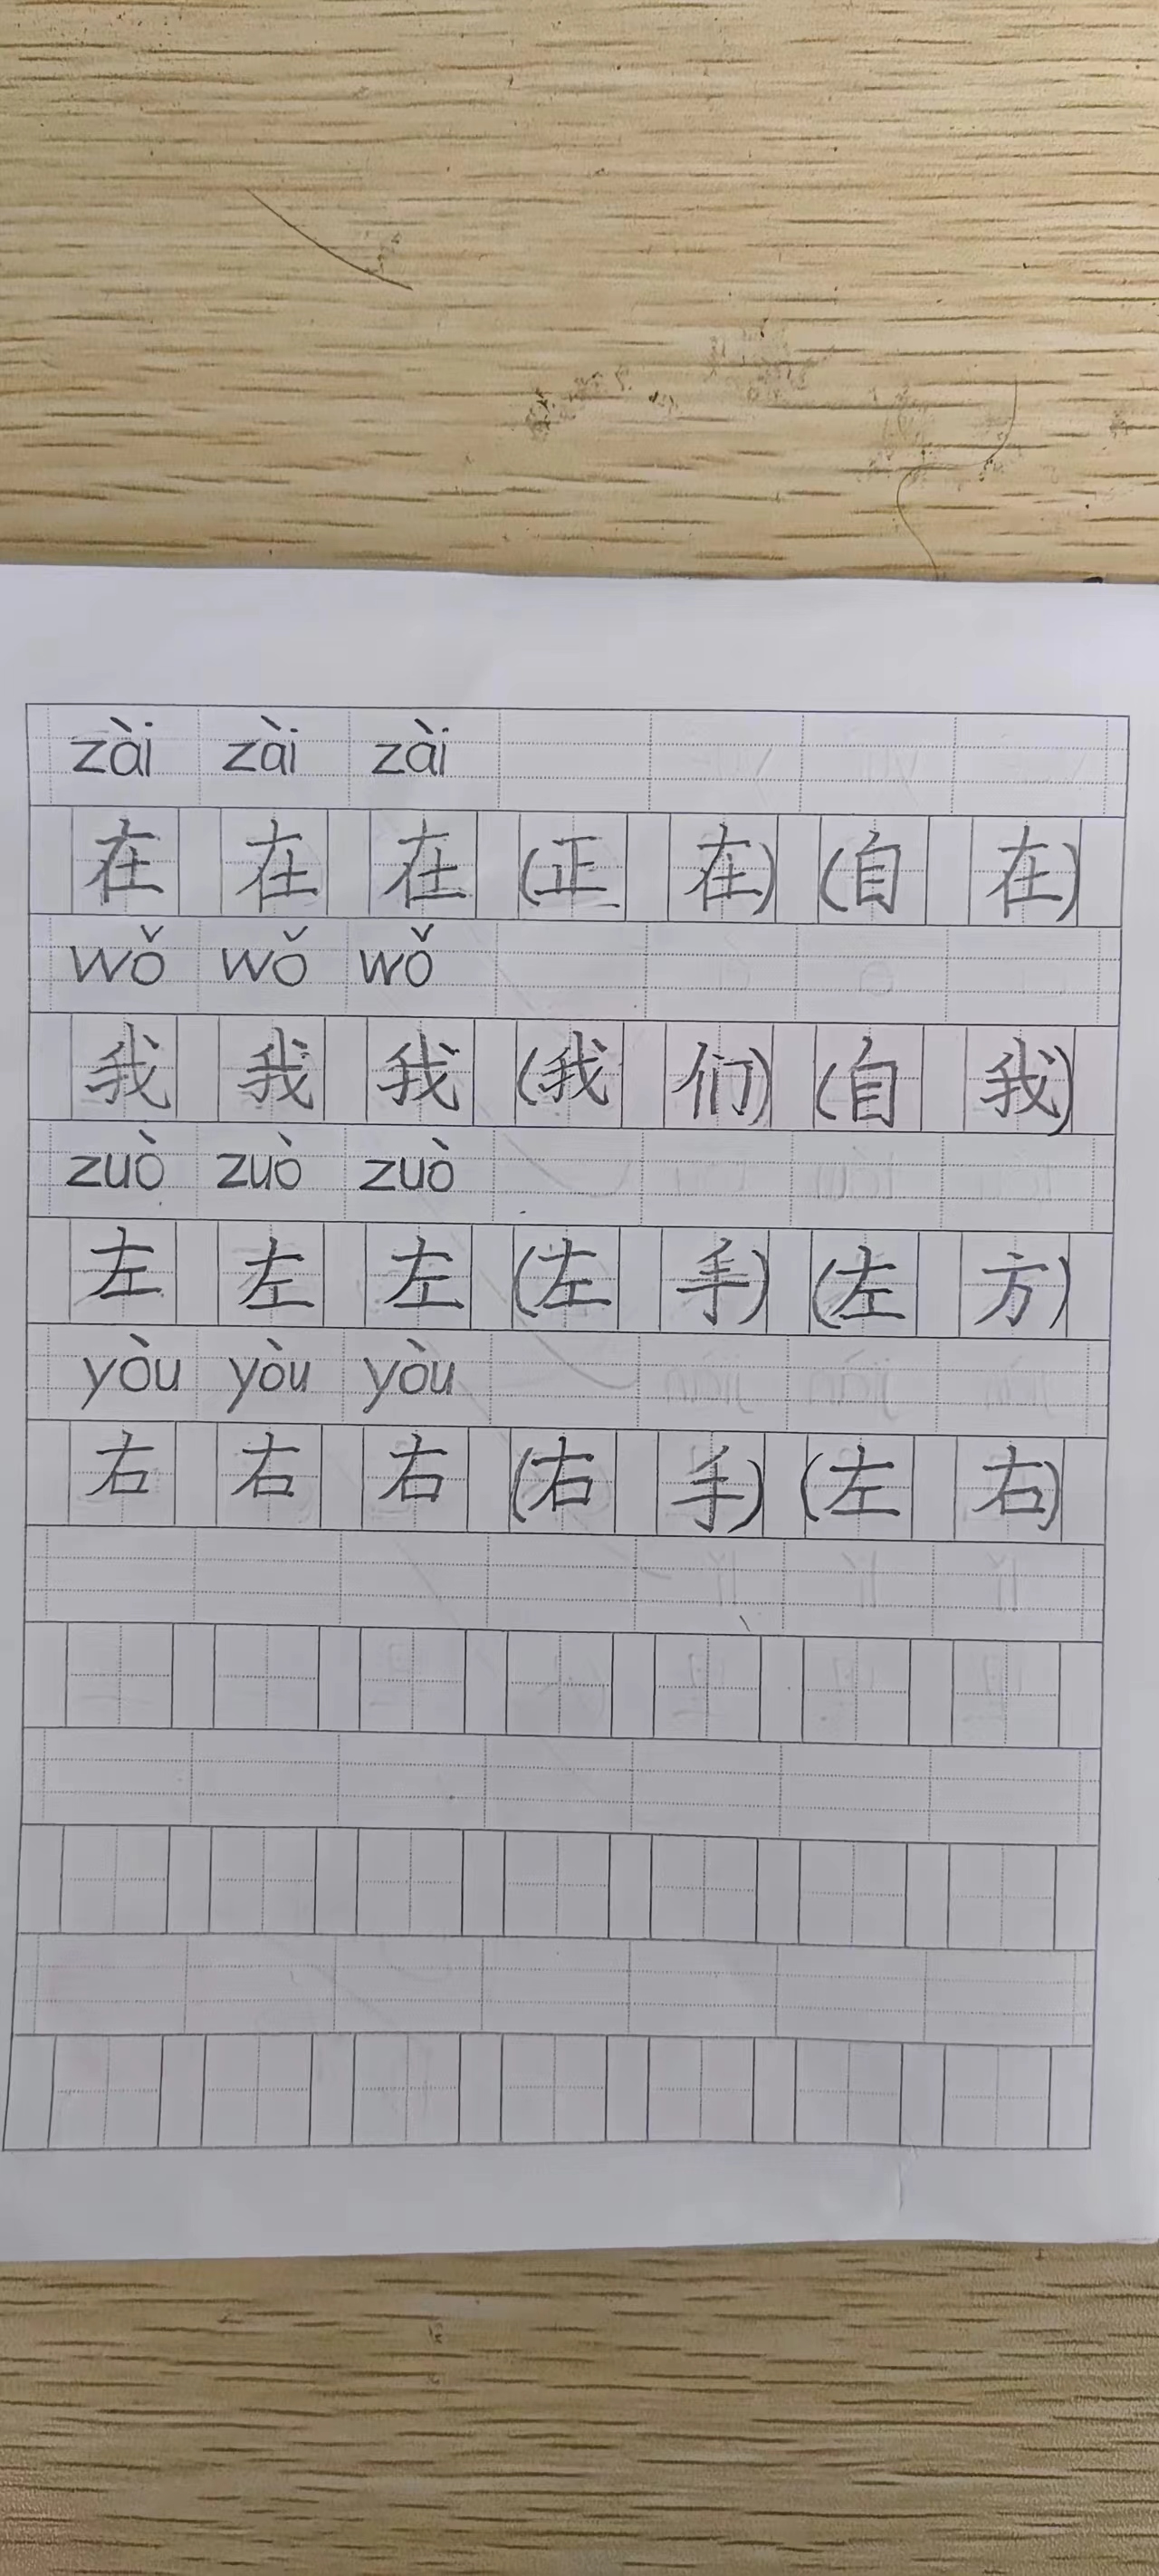 zài zài zài
在 在 在 (正 在) (自 在)
wǒ wǒ wǒ
我 我 我 (我 们) (自 我)
zuò zuò zuò
左 左 左 (左 手) (左 方)
yòu yòu yòu
右 右 右 (右 手) (左 右)